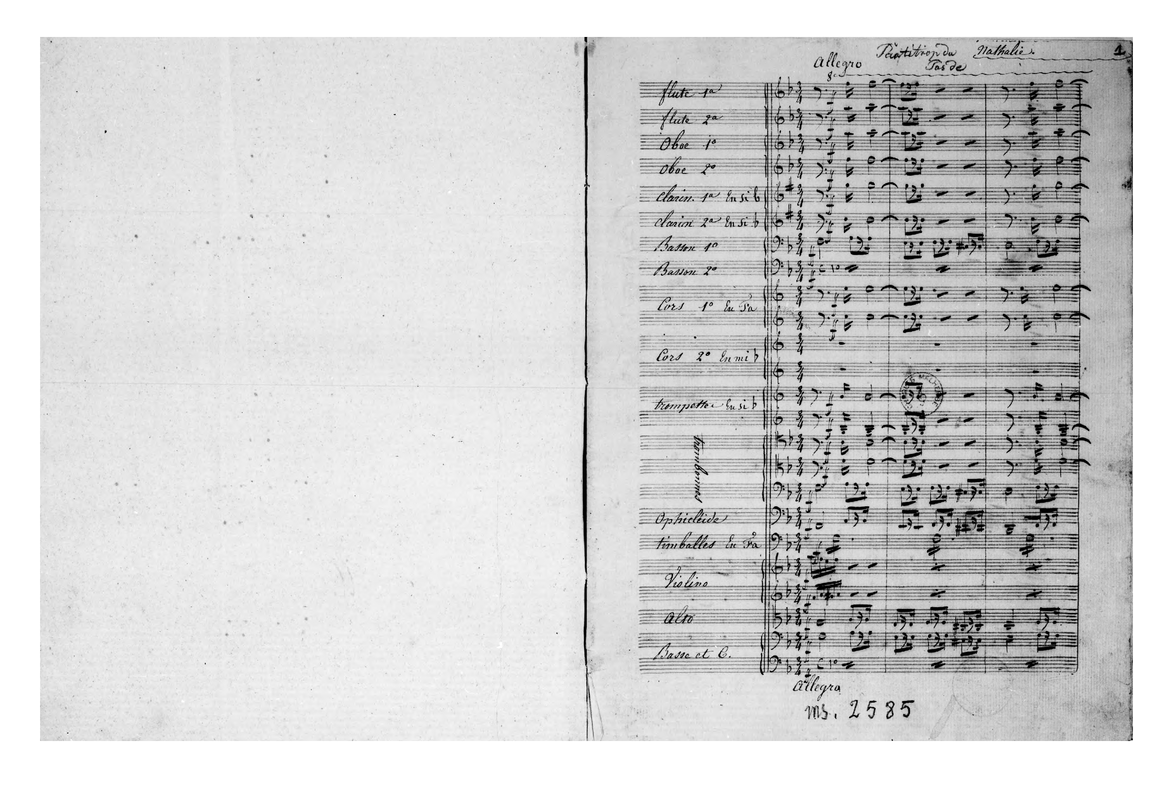 Partition du Nathalie. 1
Allegro Pas de
flute 1ª
flute 2ª
Oboe 1º
Oboe 2º
Clarin. 1ª En si b
Clarin 2ª En si b
Basson 1º
Basson 2º
Cors 1º En Fa
Cors 2º En mi b
trompette En si b
trombonnes
Ophicléide
timballes En Fa
Violino
Alto
Basse et C.
Allegro
ms. 2585